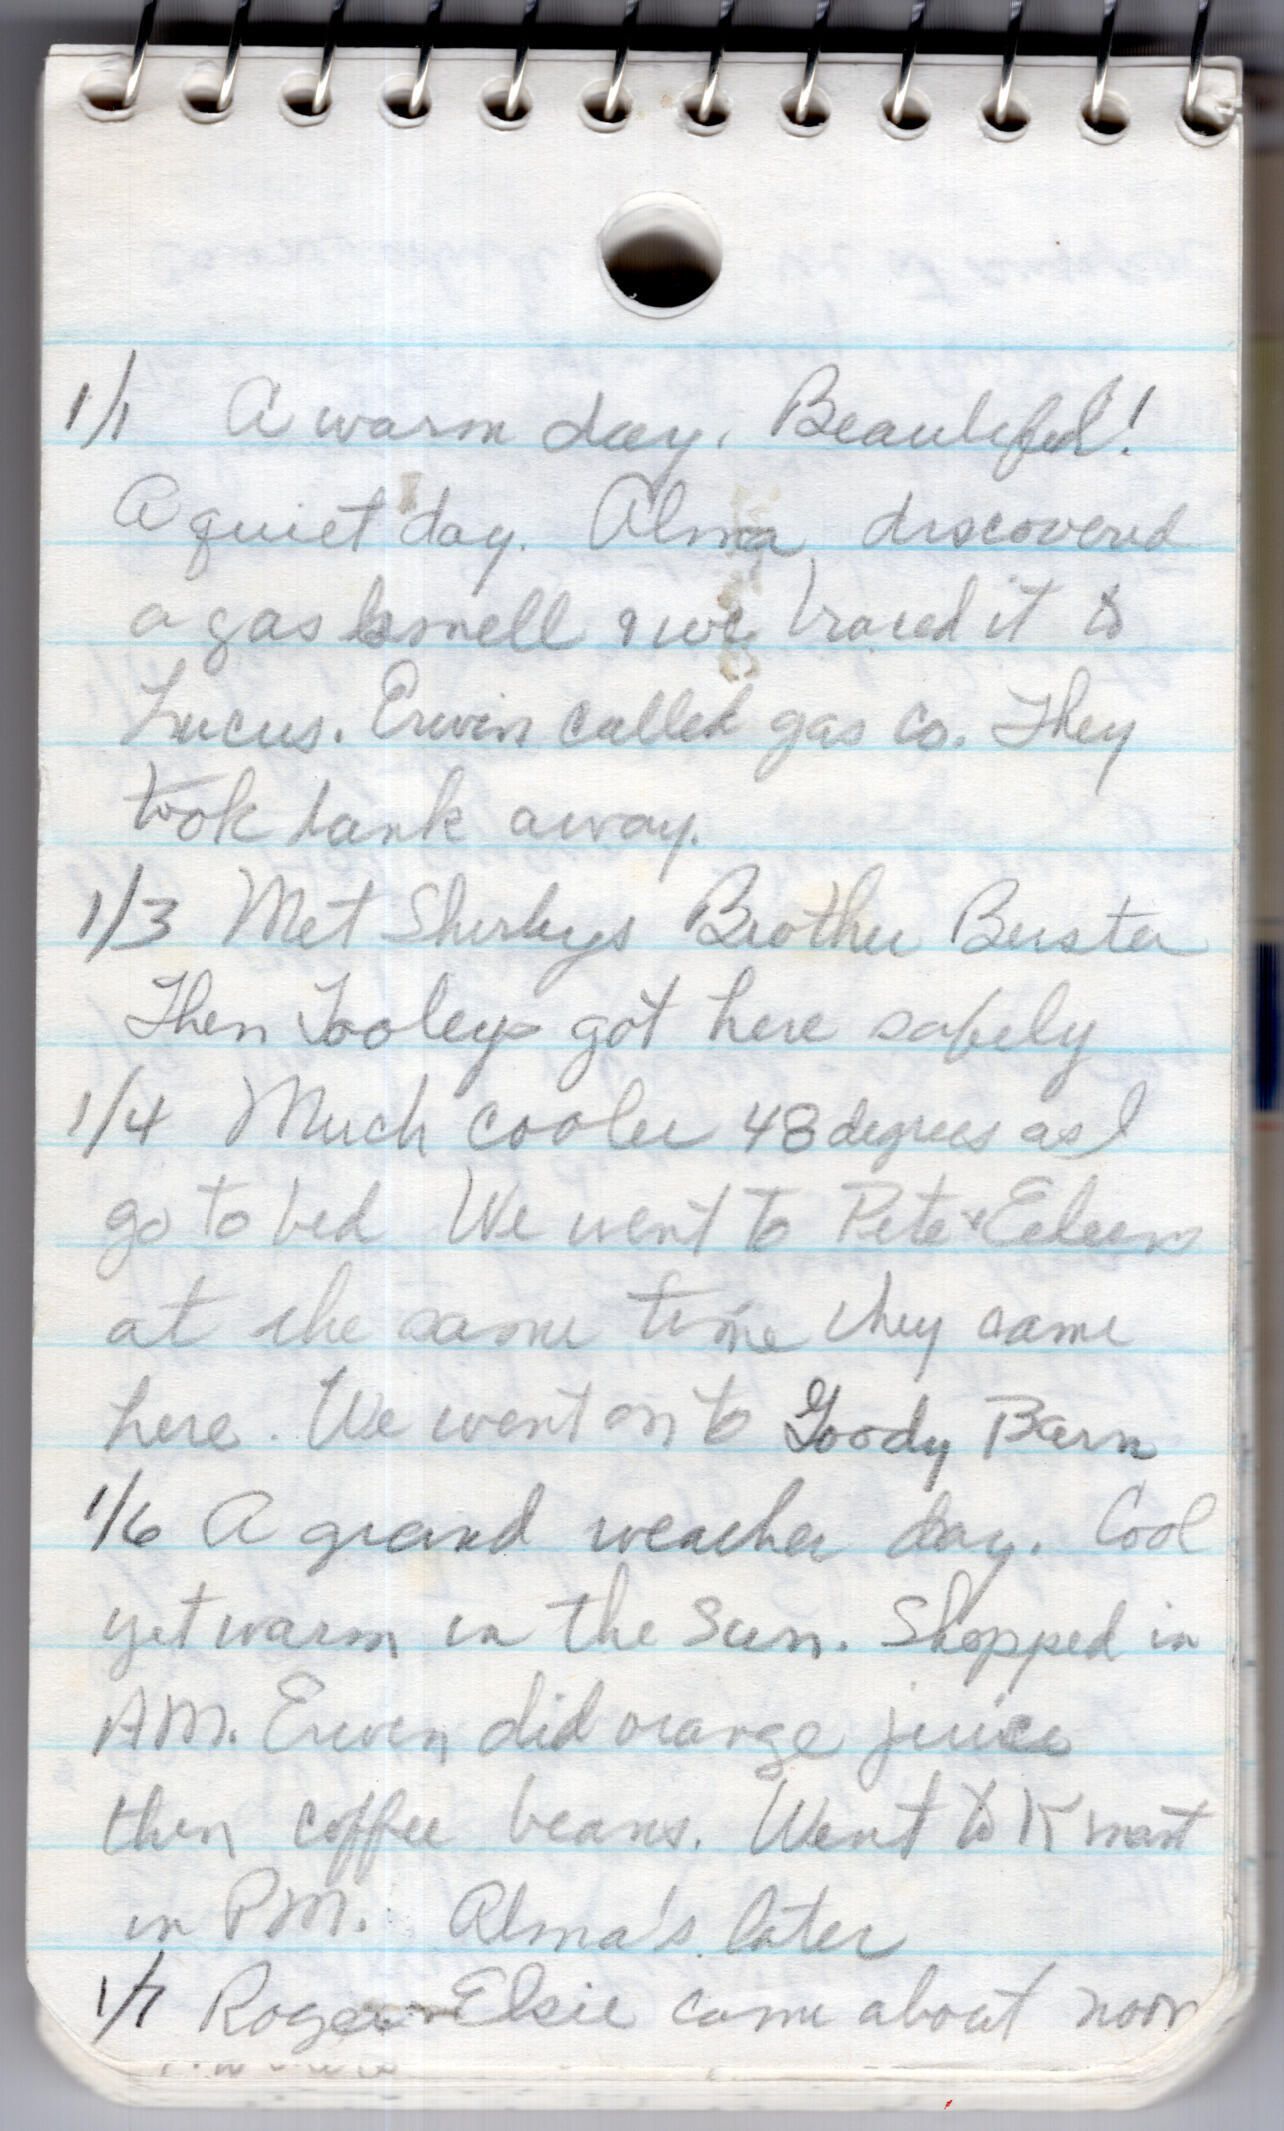 1/1 A warm day. Beautiful!
A quiet day. Alma discovered
a gas smell & we traced it to
Lucus. Erwin called gas co. They
took tank away.
1/3 Met Shirleys Brother Buster
Then Tooleys got here safely
1/4 Much cooler 48 degrees as I
go to bed We went to Pete & Eileens
at the same time they came
here. We went on to Goody Barn
1/6 A grand weather day. Cool
yet warm in the sun. Shopped in
AM. Erwin did orange juice
then coffee beans. Went to K mart
in PM. Alma's later
1/7 Roger Elsie came about noon